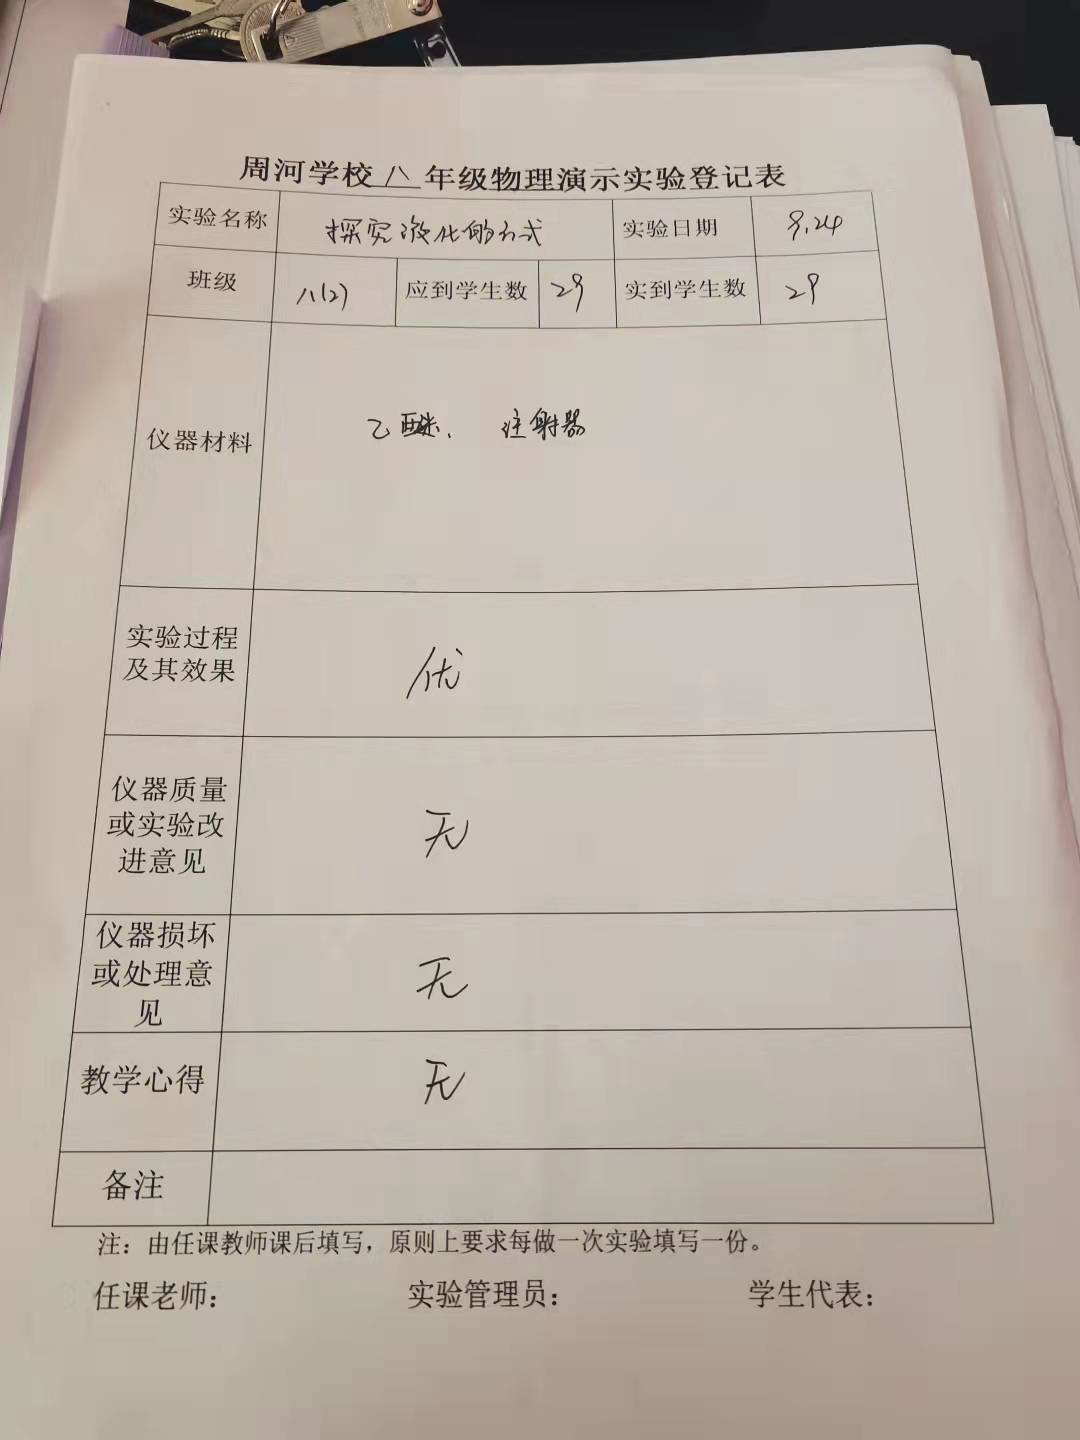 周河学校 八 年级物理演示实验登记表
实验名称 探究液化的方式 实验日期 9.24
班级 八(2) 应到学生数 29 实到学生数 29
仪器材料 乙醚、 注射器
实验过程
及其效果 优
仪器质量
或实验改
进意见 无
仪器损坏
或处理意
见 无
教学心得 无
备注
注：由任课教师课后填写，原则上要求每做一次实验填写一份。
任课老师： 实验管理员： 学生代表：